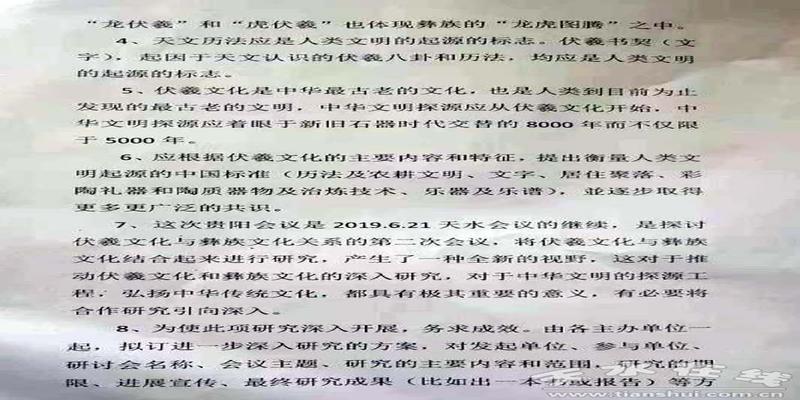 “龙伏羲”和“虎伏羲”也体现彝族的“龙虎图腾”之中。
4、天文历法应是人类文明的起源的标志。伏羲书契（文
字），起因于天文认识的伏羲八卦和历法，均应是人类文明
的起源的标志。
5、伏羲文化是中华最古老的文化，也是人类到目前为止
发现的最古老的文明，中华文明探源应从伏羲文化开始，中
华文明探源应着眼于新旧石器时代交替的8000年而不仅限
于5000年。
6、应根据伏羲文化的主要内容和特征，提出衡量人类文
明起源的中国标准（历法及农耕文明、文字、居住聚落、彩
陶礼器和陶质器物及冶炼技术、乐器及乐谱），並逐步取得
更多更广泛的共识。
7、这次贵阳会议是2019.6.21天水会议的继续，是探讨
伏羲文化与彝族文化关系的第二次会议，将伏羲文化与彝族
文化结合起来进行研究，产生了一种全新的视野，这对于推
动伏羲文化和彝族文化的深入研究，对于中华文明的探源工
程；弘扬中华传统文化，都具有极其重要的意义，有必要将
合作研究引向深入。
8、为使此项研究深入开展，务求成效。由各主办单位一
起，拟订进一步深入研究的方案，对发起单位、参与单位、
研讨会名称、会议主题、研究的主要内容和范围，研究的期
限、进展宣传、最终研究成果（比如出一本书或报告）等方
天水在线
www.tianshui.com.cn